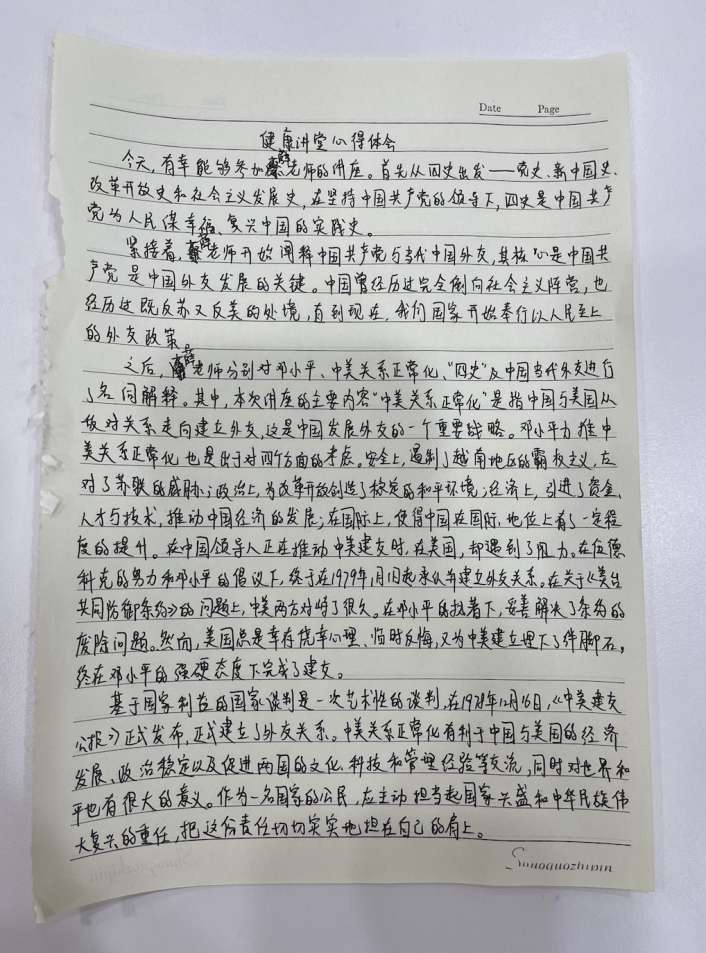 Date Page
健康讲堂心得体会
今天,有幸能够参加薛老师的讲座。首先从四史出发——党史、新中国史、
改革开放史和社会主义发展史,在坚持中国共产党的领导下,四史是中国共产
党为人民谋幸福、复兴中国的实践史。
紧接着,薛老师开始阐释中国共产党与当代中国外交,其核心是中国共
产党是中国外交发展的关键。中国曾经历过完全倒向社会主义阵营,也
经历过既反苏又反美的处境,直到现在,我们国家开始奉行以人民至上
的外交政策。
之后,薛老师分别对邓小平、中美关系正常化、“四史”及中国当代外交进行
了名词解释。其中,本次讲座的主要内容“中美关系正常化”是指中国与美国从
敌对关系走向建立外交,这是中国发展外交的一个重要战略。邓小平力推中
美关系正常化也是出于对四个方面的考虑。安全上,遏制了越南地区的霸权主义,应
对了苏联的威胁;政治上,为改革开放创造了稳定的和平环境;经济上,引进了资金、
人才与技术,推动中国经济的发展;在国际上,使得中国在国际地位上有了一定程
度的提升。在中国领导人正在推动中美建交时,在美国,却遇到了阻力。在伍德
科克的努力和邓小平的倡议下,终于在1979年1月1日起承认并建立外交关系。在关于《美台
共同防御条约》的问题上,中美两方对峙了很久。在邓小平的执着下,妥善解决了条约的
废除问题。然而,美国总是幸存侥幸心理、临时反悔,又为中美建立埋下了绊脚石,
终在邓小平的强硬态度下完成了建交。
基于国家利益的国家谈判是一次艺术性的谈判,在1978年12月16日,《中美建交
公报》正式发布,正式建立了外交关系。中美关系正常化有利于中国与美国的经济
发展、政治稳定以及促进两国的文化、科技和管理经验等交流,同时对世界和
平也有很大的意义。作为一名国家的公民,应主动担当起国家兴盛和中华民族伟
大复兴的重任,把这份责任切切实实地担在自己的肩上。
Shuoguozhipin